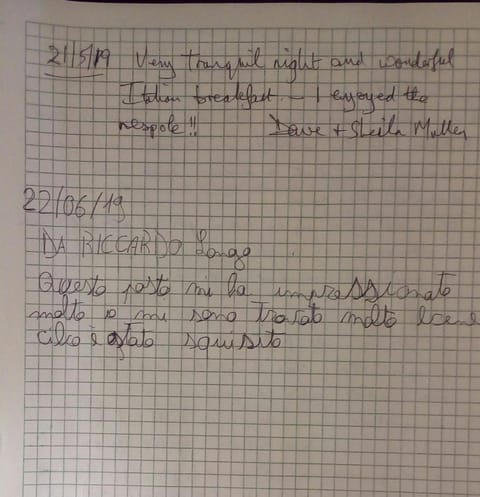 21/5/19 Very tranquil night and wonderful
Italian breakfast - I enjoyed the
nespole!! Dave + Sheila Mullen
22/06/19
DA RICCARDO Longo
Questo posto mi ha impressionato
molto io mi sono trovato molto bene
cibo è stato squisito